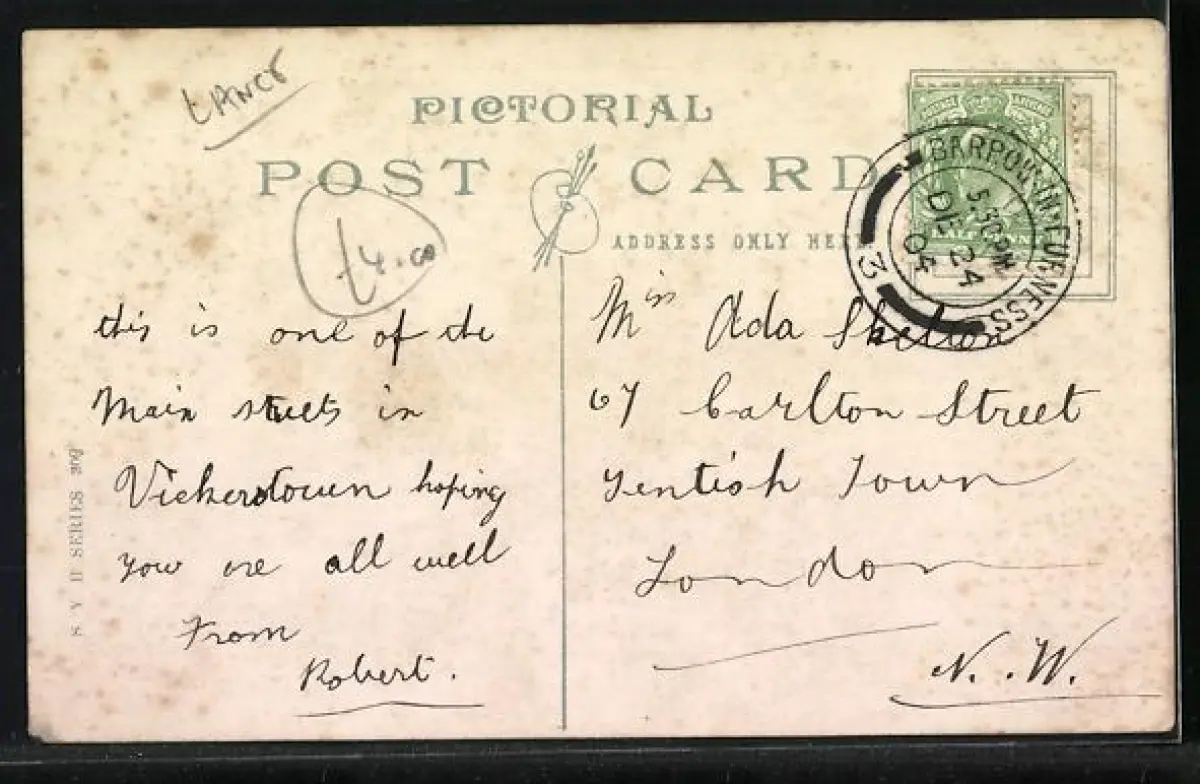 LANCS
PICTORIAL
POST CARD
£4.00
ADDRESS ONLY HERE
BARROW-IN-FURNESS
5.30 PM
DE 24
04
3
this is one of the
Main streets in
Vickerstown hoping
you are all well
From
Robert.
Miss Ada Shelton
67 Carlton Street
Kentish Town
London
N.W.
S V H SERIES